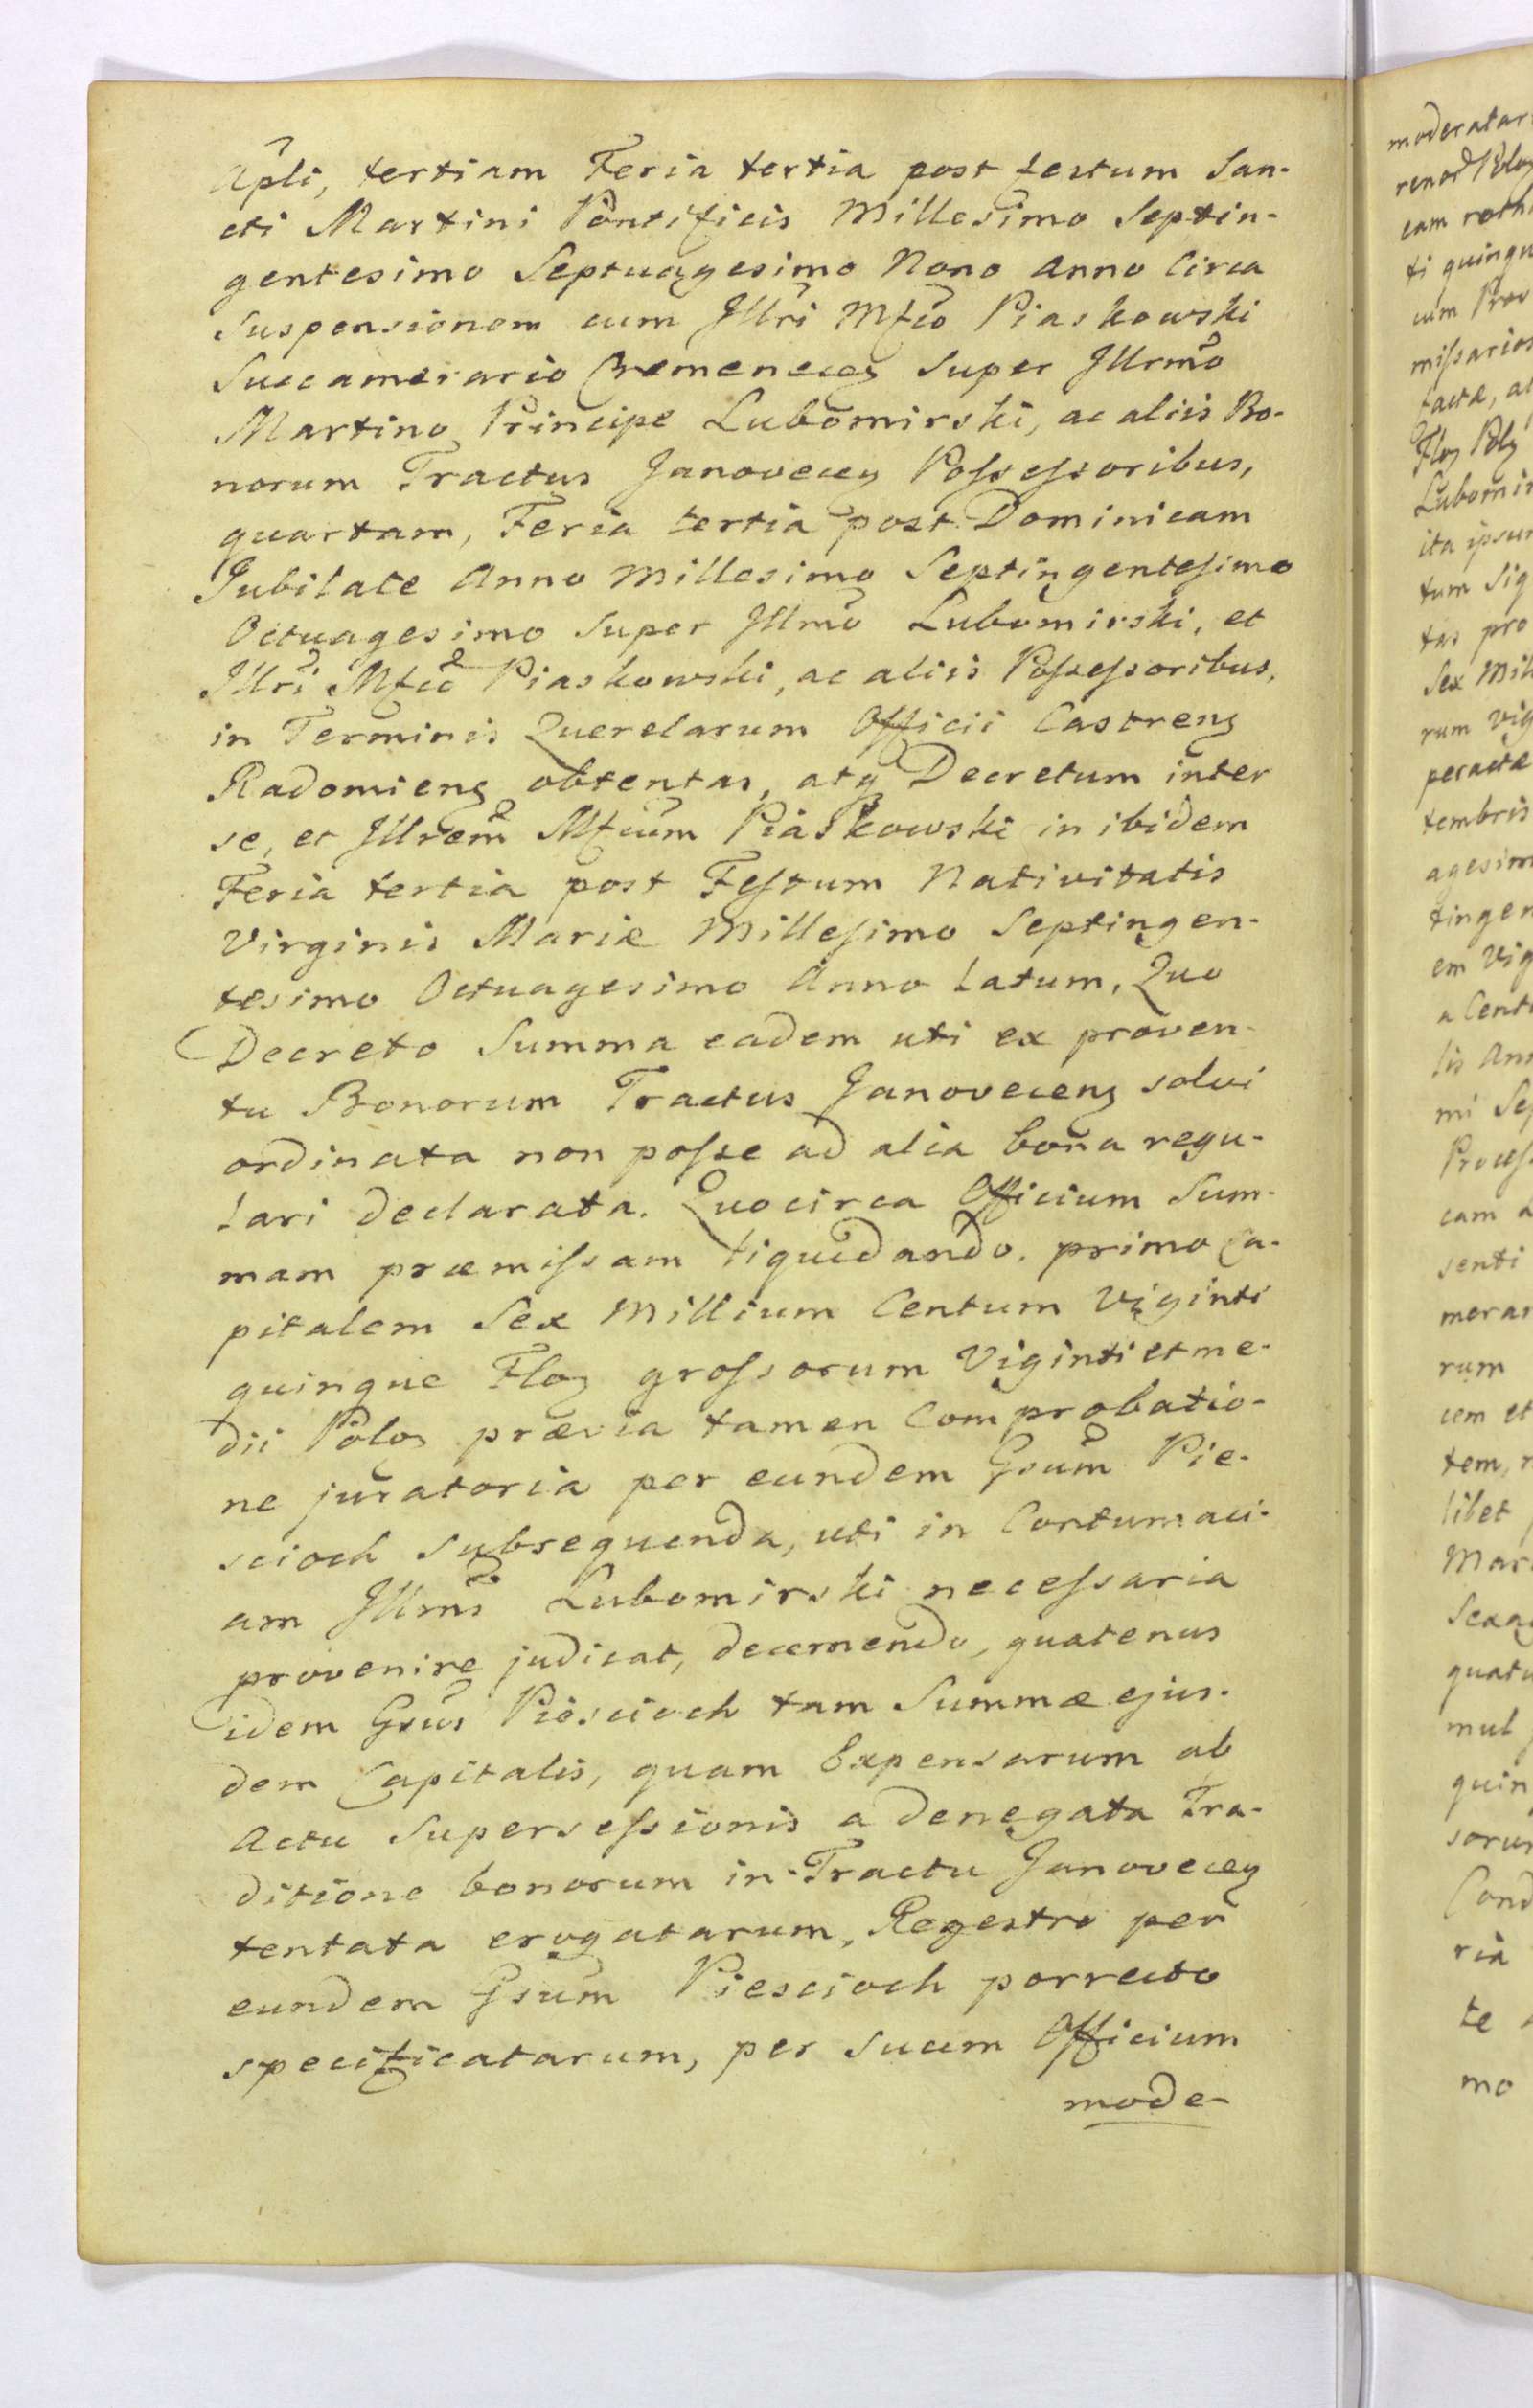 Apli, tertiam Feria tertia post festum San-
cti Martini Pontificis Millesimo Septin-
gentesimo Septuagesimo Nono Anno Circa
Suspensionem cum Jllri Mfco Piaskowski
Succamerario Cremenecen Super Jllrmo
Martino Principe Lubomirski, ac aliis Bo-
norum Tractus Janovecen Possessoribus,
quartam, Feria tertia post Dominicam
Jubilate Anno Millesimo Septingentesimo
Octuagesimo Super Jllmo Lubomirski, et
Jllri Mfco Piaskowski, ac aliis Possessoribus,
in Terminis Querelarum Officii Castrens
Radomiens obtentas, atq Decretum inter
se, et Jllrem Mfcum Piaskowski in ibidem
Feria tertia post Festum Nativitatis
Virginis Mariæ Millesimo Septingen-
tesimo Octuagesimo Anno Latum, Quo
Decreto Summa eadem uti ex proven-
tu Bonorum Tractus Janovecens solvi
ordinata non posse ad alia bona regu-
lari declarata. Quocirca Officium Sum-
mam præmissam liquidando. primo Ca-
pitalem Sex Millium Centum Viginti
quinque Flor grossorum Viginti et me-
dii Polor prævia tamen Comprobatio-
ne juratoria per eundem Gsum Pie-
scioch subsequenda, uti in Contumaci-
am Jllmi Lubomirski necessaria
provenire judicat, decernendo, quatenus
idem Gsus Piescioch tam Summæ ejus-
dem Capitalis, quam Expensarum ab
Actu Supersessionis a denegata Tra-
ditione bonorum in Tractu Janovecen
tentata erogatarum, Regestro per
eundem Gsum Piescioch porrecto
specificatarum, per suum Officium
mode-
moderatar
cam
ti quinqu
missarios
factæ, ac
Flor Pol
Lubomir
ita ipsum
tum Sig
tas pro
Sex Mill
rum Vig
peractæ
tembris
agesim
tingen
em Vig
a Cent
lis Ann
mi Sep
Process
cam a
senti
meras
rum
cem et
tem, r
libet
Mar
Sexag
quatu
mul
quin
sorum
Cond
ria
te
mo